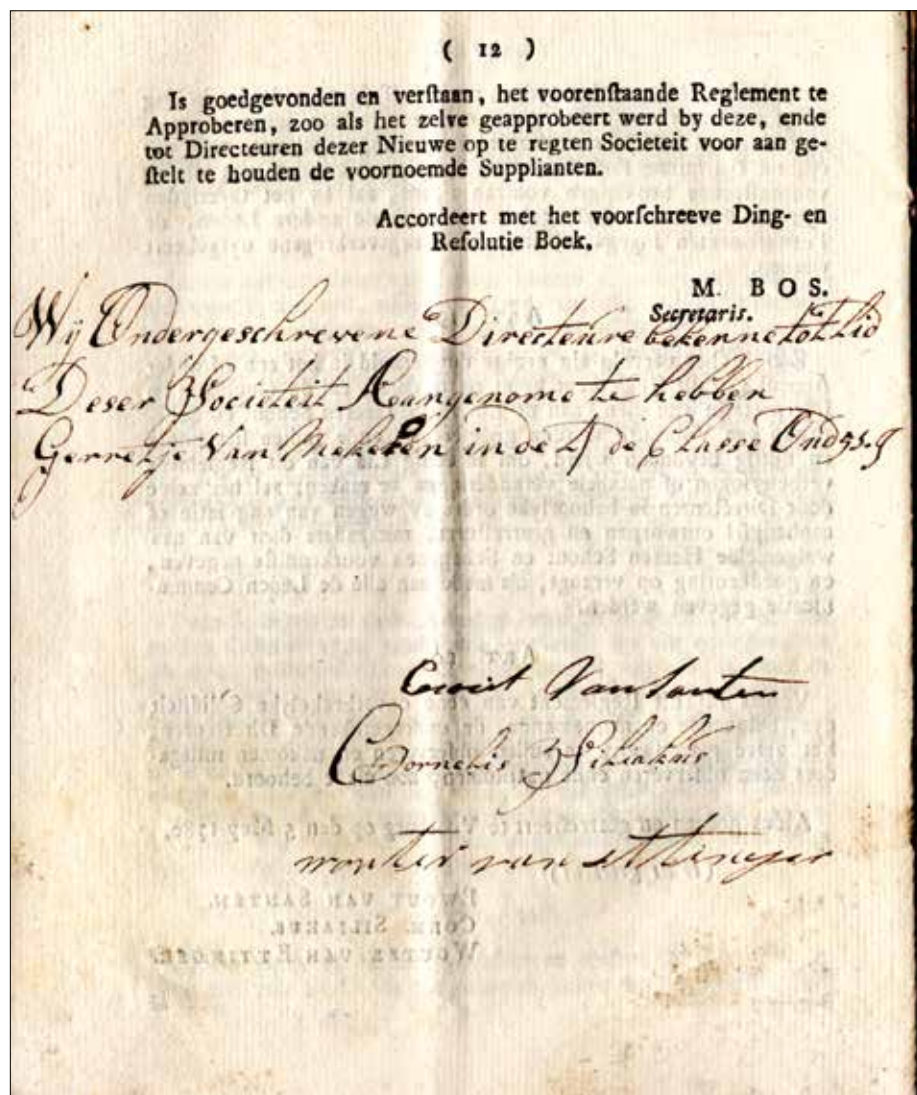 ( 12 )
Is goedgevonden en verſtaan, het voorenſtaande Reglement te
Approberen, zoo als het zelve geapprobeert werd by deze, ende
tot Directeuren dezer Nieuwe op te regten Societeit voor aan ge-
ſtelt te houden de voornoemde Supplianten.
Accordeert met het voorſchreeve Ding- en
Reſolutie Boek.
M. BOS.
Secretaris.
Wij Ondergeschrevene Directeure bekenne tot Lid
Deser Societeit Aangenome te hebben
Gerretje Van in de 4 de Classe
Van Santen
Cornelis Siliakus
wouter van ettinger